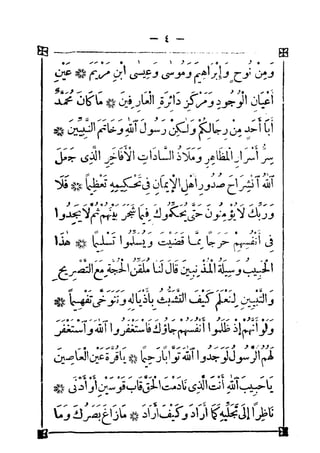 - ٤ -
وَمِنْ نُوحٍ وَإِبْرَاهِيمَ وَمُوسَى وَعِيسَى ابْنِ مَرْيَمَ * عَيْنِ
أَعْيَانِ الْوُجُودِ وَمَرْكَزِ دَائِرَةِ الْعَارِفِينَ * مَا كَانَ مُحَمَّدٌ
أَبَا أَحَدٍ مِنْ رِجَالِكُمْ وَلٰكِنْ رَسُولَ اللهِ وَخَاتَمَ النَّبِيِّينَ *
سِرُّ أَسْرَارِ الْمَظَاهِرِ وَمَلَاذُ السَّادَاتِ الْأَفَاخِرِ الَّذِى جَعَلَ
اللهُ انْشِرَاحَ صُدُورِ أَهْلِ الْإِيمَانِ فِى تَحْكِيمِهِ تَعْظِيمًا * فَلَا
وَرَبِّكَ لَا يُؤْمِنُونَ حَتَّى يُحَكِّمُوكَ فِيمَا شَجَرَ بَيْنَهُمْ ثُمَّ لَا يَجِدُوا
فِى أَنْفُسِهِمْ حَرَجًا مِمَّا قَضَيْتَ وَيُسَلِّمُوا تَسْلِيمًا * هٰذَا
الْحَبِيبُ وَسِيلَةُ الْمُذْنِبِينَ قَالَ لَنَا مُلَقِّنُ الْحُجَّةِ مَعَ التَّصْرِيحِ
وَالتَّبْيِينِ لِنَعْلَمَ كَيْفَ التَّشَبُّثُ بِأَذْيَالِهِ وَنَتَوَخَّى تَفْهِيمًا *
وَلَوْ أَنَّهُمْ إِذْ ظَلَمُوا أَنْفُسَهُمْ جَاؤُكَ فَاسْتَغْفَرُوا اللهَ وَاسْتَغْفَرَ
لَهُمُ الرَّسُولُ لَوَجَدُوا اللهَ تَوَّابًا رَحِيمًا * يَا قُرَّةَ عَيْنِ الْعَاصِينَ
يَا حَبِيبَ اللهِ أَنْتَ الَّذِى نَادَمْتَ الْحَقَّ قَابَ قَوْسَيْنِ أَوْ أَدْنَى *
نَاظِرًا إِلَى تَجَلِّيهِ كَمَا أَرَادَ وَكَيْفَ أَرَادَ * مَا زَاغَ بَصَرُكَ وَمَا